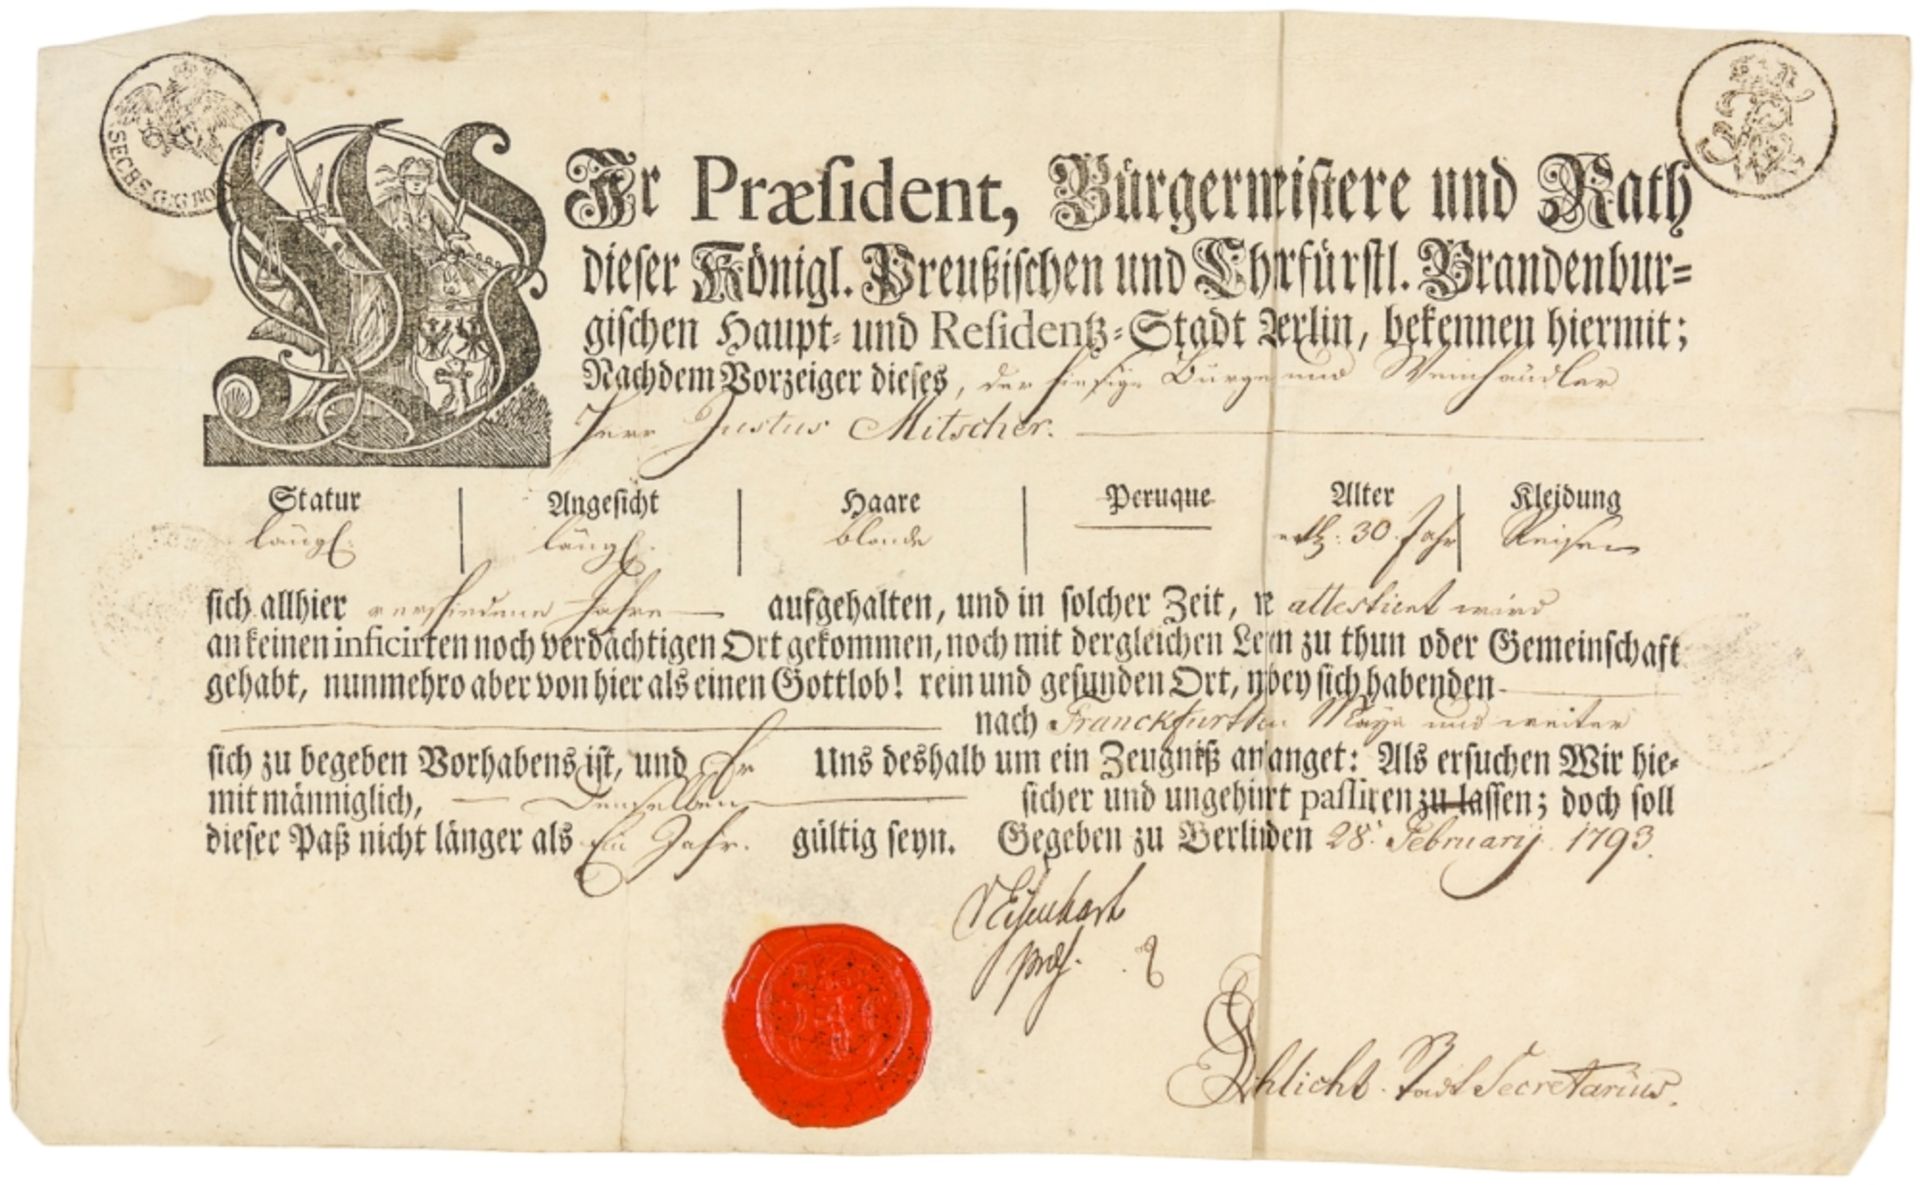 SECHS G:GRO
WIr Præsident, Bürgermeistere und Rath
dieser Königl. Preußischen und Chrfürstl. Brandenbur=
gischen Haupt= und Residentz=Stadt Berlin, bekennen hiermit;
Nachdem Vorzeiger dieses, der hiesige Bürger und Weinhändler
Herr Justus Mitscher.
Statur Angesicht Haare Peruque Alter Kleidung
längl. längl. blonde 30. Jahr Reisen
sich allhier verschiedene Jahre aufgehalten, und in solcher Zeit, attestiret wird
an keinen inficirten noch verdächtigen Ort gekommen, noch mit dergleichen zu thun oder Gemeinschaft
gehabt, nunmehro aber von hier als einen Gottlob! rein und gesunden Ort, bey sich habenden
nach Franckfurth Mayn und weiter
sich zu begeben Vorhabens ist, und Er Uns deshalb um ein Zeugniß anlanget: Als ersuchen Wir hie=
mit männiglich, Denselben sicher und ungehindert passiren zu lassen; doch soll
dieser Paß nicht länger als Ein Jahr. gültig seyn. Gegeben zu Berlin den 28. Februarij 1793.
v Eisenhart
præs.
Schlicht. Stadt Secretarius.